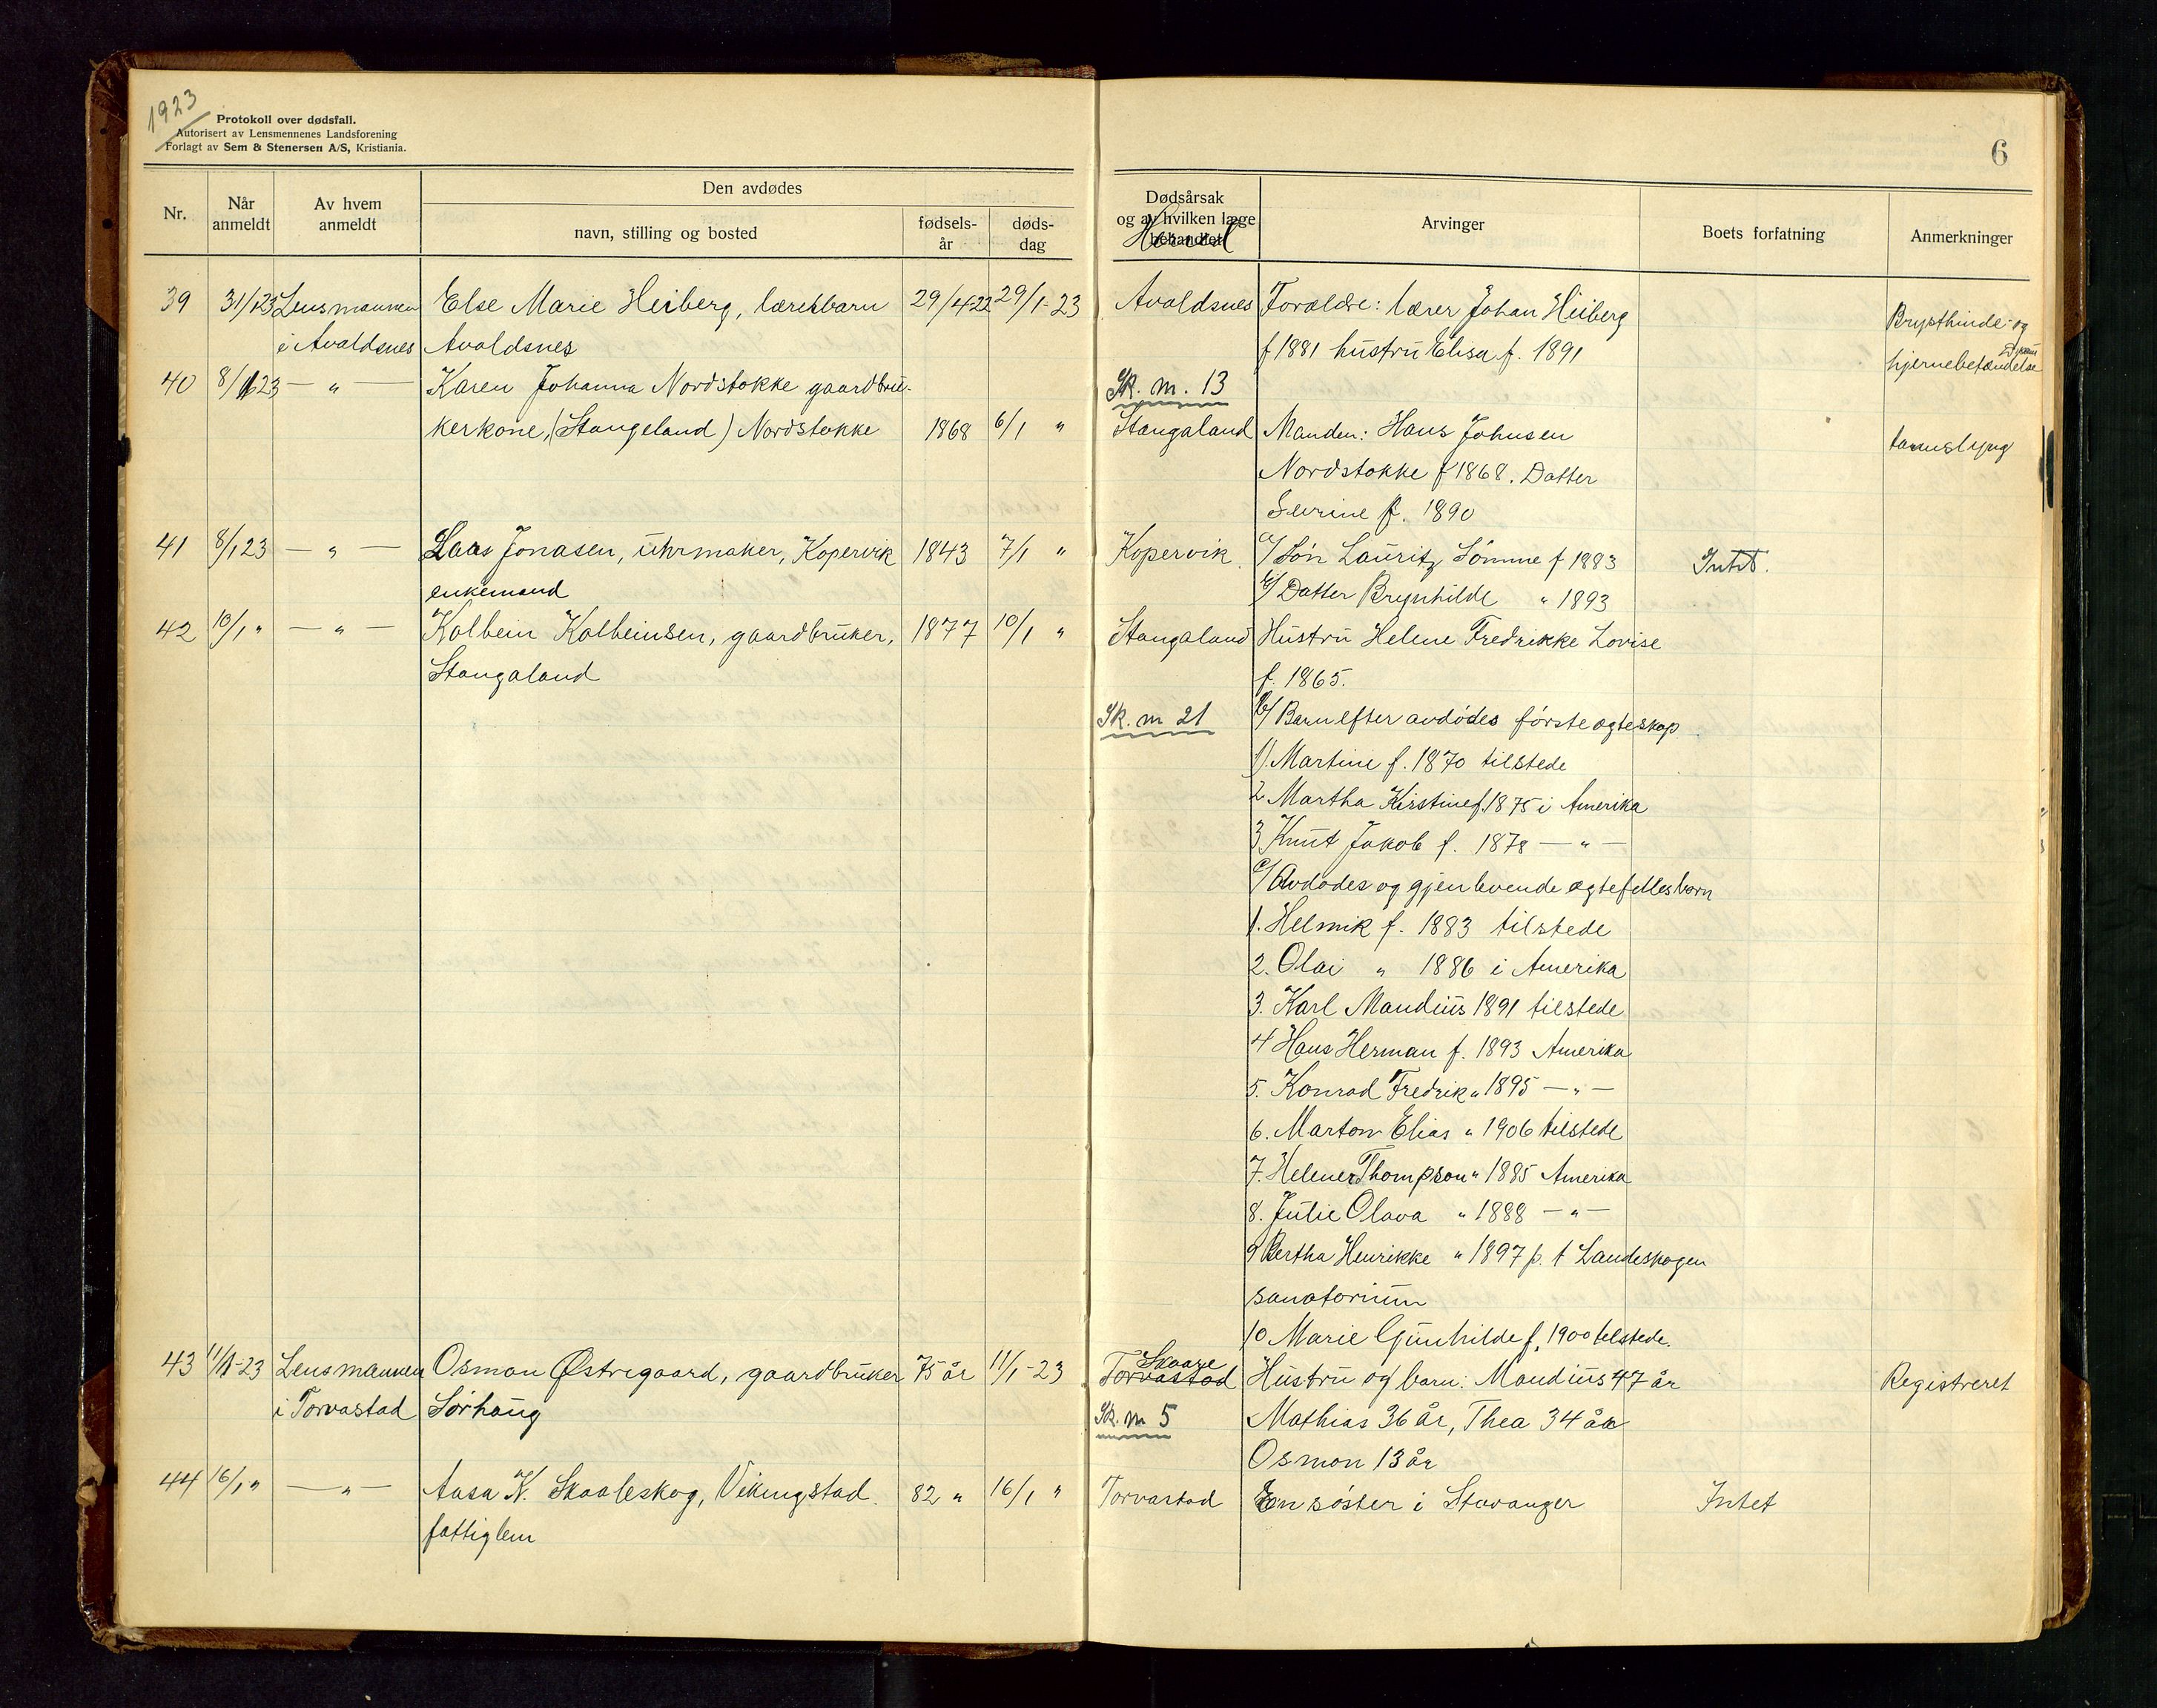 1923
Protokoll over dødsfall.
Autorisert av Lensmennenes Landsforening
Forlagt av Sem & Stenersen A/S, Kristiania.
6
Nr.
Når anmeldt
Av hvem anmeldt
Den avdødes
navn, stilling og bosted
fødsels-år
døds-dag
Dødsårsak og av hvilken læge behandlet
Herred
Arvinger
Boets forfatning
Anmerkninger
39 31/1 23 Lensmannen Else Marie Heiberg, lærerbarn 29/4-22 29/1-23 Avaldsnes Forældre: lærer Johan Heiberg
i Avaldsnes Avaldsnes f 1881 hustru Elisa f. 1891
Brysthinde- og
hjernebetændelse
40 8/1 23 — " — Karen Johanna Nordstokke gaardbru-
Sk. m. 13
kerkone, (Stangeland) Nordstokke 1868 6/1 " Stangaland Manden: Hans Johnsen
Nordstokke f 1868. Datter
Severine f. 1890
41 8/1 23 — " — Laas Jonasen, uhrmaker, Kopervik 1843 7/1 " Kopervik a/ Søn Lauritz Sømme f 1883 Intet.
enkemand b/ Datter Brynhilde " 1893
42 10/1 " — " — Kolbein Kolbeinsen, gaardbruker, 1877 10/1 " Stangaland Hustru Helene Fredrikke Lovise
Stangaland f. 1865.
Sk. m 21 b/ Barn efter avdødes første ægteskap
1) Martine f. 1870 tilstede
2 Martha Kirstine f. 1875 i Amerika
3. Knut Jakob f. 1878 — " —
c/ Avdødes og gjenlevende ægtefelles barn
1. Helmik f. 1883 tilstede
2. Olai " 1886 i Amerika
3. Karl Mandius 1891 tilstede
4 Hans Herman f. 1893 Amerika
5. Konrad Fredrik " 1895 — " —
6. Marton Elias " 1906 tilstede
7. Helene Thompson " 1885 Amerika
8. Julie Olava " 1888 — " —
9 Bertha Henrikke " 1897 p. t Landeskogen
sanatorium
10 Marie Gunhilde f. 1900 tilstede.
43 11/1-23 Lensmannen Osmon Østregaard, gaardbruker 75 år 11/1-23 Torvastad Skaare Hustru og barn: Mandius 47 år Registreret
i Torvastad Sørhaug Sk. m 5 Mathias 36 år, Thea 34 år
Osmon 13 år
44 16/1 " — " — Aasa K. Skaaleskog, Vikingstad. 82 " 16/1 " Torvastad En søster i Stavanger Intet
fattiglem